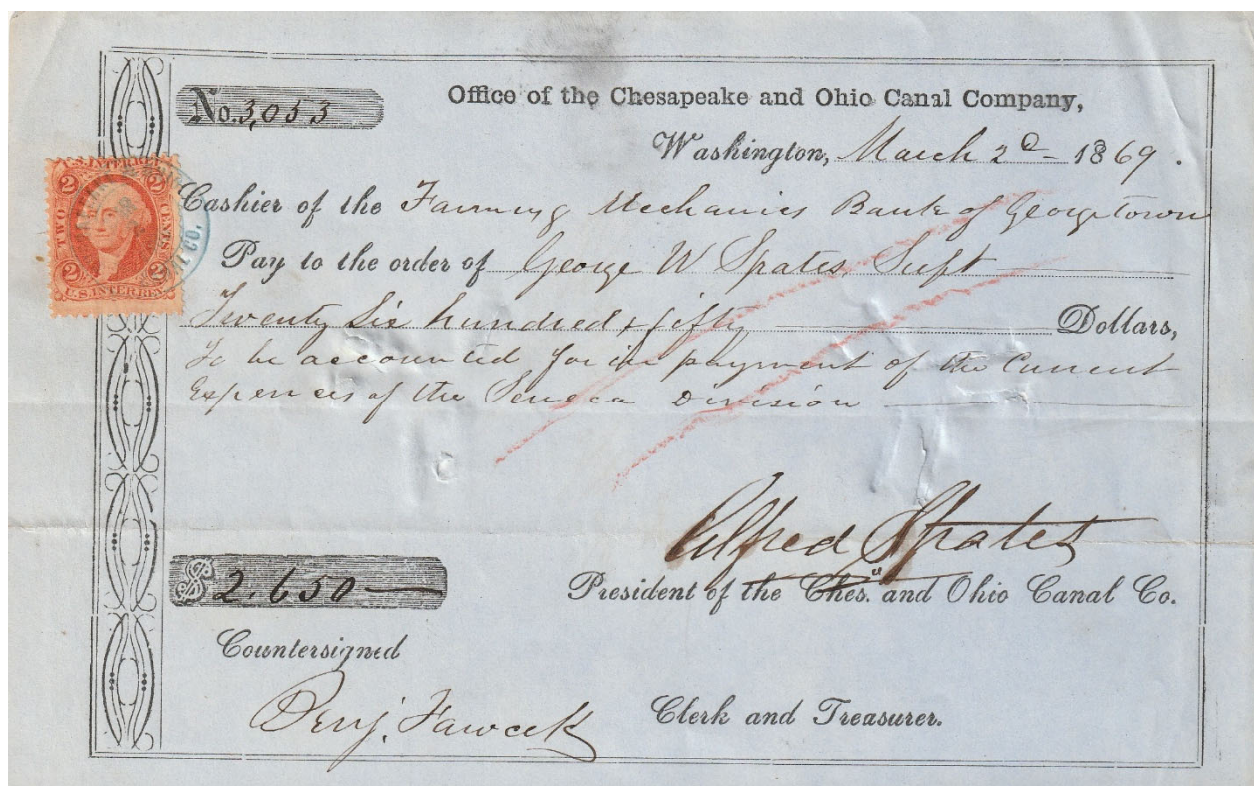 No. 3,053
Office of the Chesapeake and Ohio Canal Company,
Washington, March 2d 1869.
Cashier of the Farming Mechanics Bank of Georgetown
Pay to the order of George W Spates Supt
Twenty Six hundred & fifty Dollars,
To be accounted for in payment of the Current
Expences of the Seneca Division
$ 2.650
Alfred Spates
President of the Ches. and Ohio Canal Co.
Countersigned
Benj. Fawcett
Clerk and Treasurer.
U.S. INTER. REV.
2 2
TWO CENTS
2 2
U.S. INTER. REV.
CO.